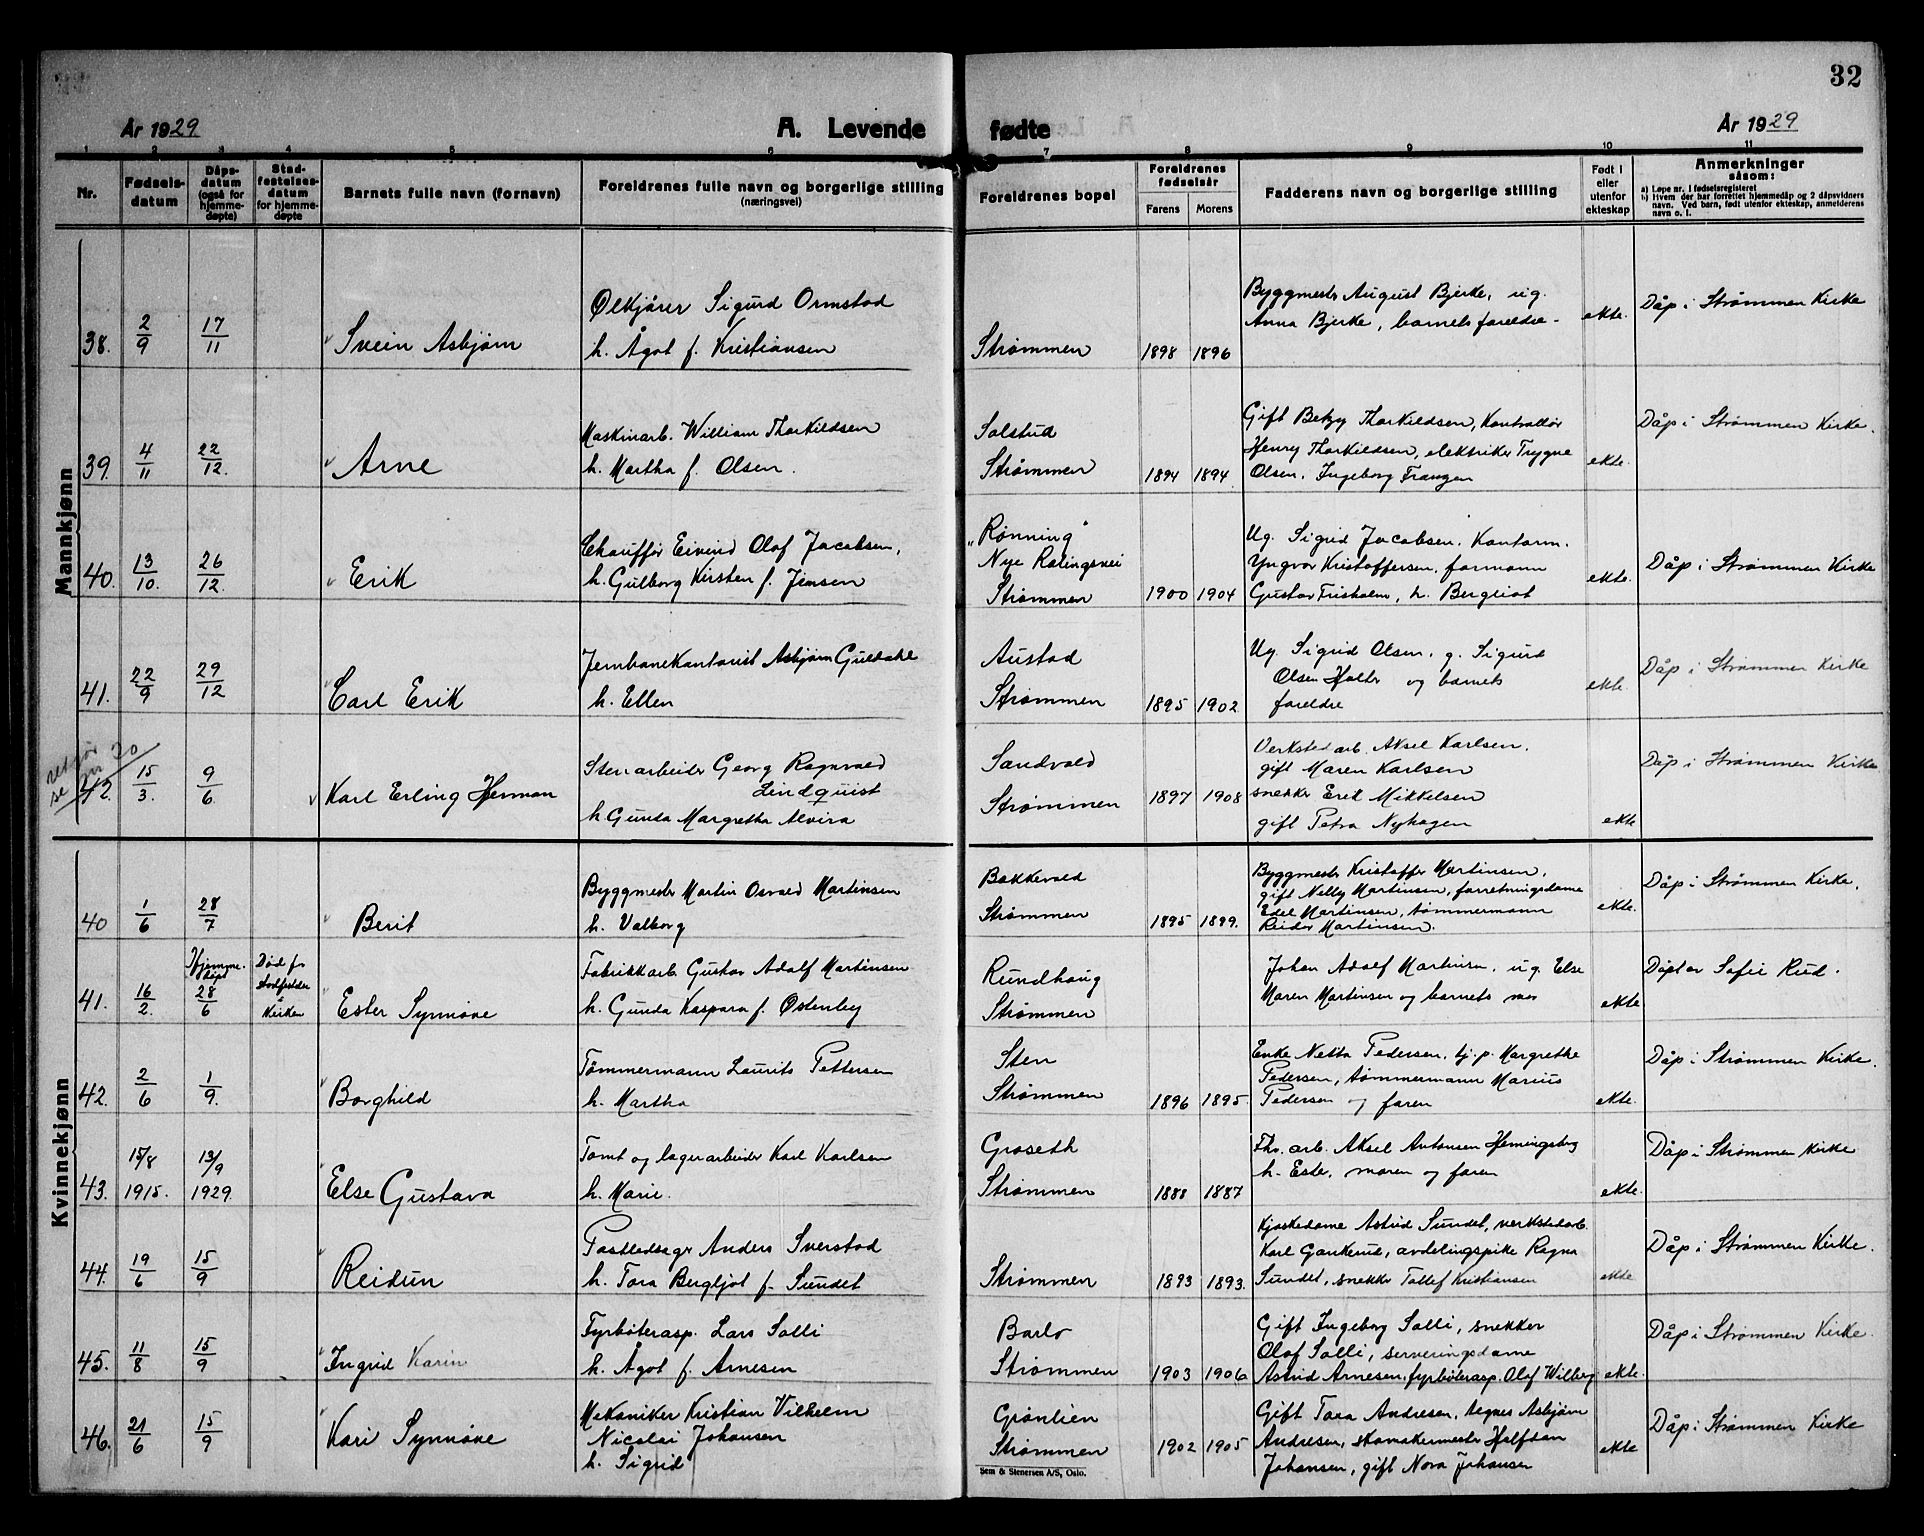 32
År 1929
A. Levende fødte
År 1929
1 2 3 4 5 6 7 8 9 10 11
Nr.
Fødsels-
datum
Dåps-
datum
(også for
hjemme-
døpte)
Stad-
festelses-
datum
for hjemme-
døpte
Barnets fulle navn (fornavn)
Foreldrenes fulle navn og borgerlige stilling
(næringsvei)
Foreldrenes bopel
Foreldrenes
fødselsår
Farens
Morens
Fadderens navn og borgerlige stilling
Født i
eller
utenfor
ekteskap
Anmerkninger
såsom:
a) Løpe nr. i fødselsregisteret
b) Hvem der har forrettet hjemmedåp og 2 dåpsvidners
navn. Ved barn, født utenfor ekteskap, anmelderens
navn o. l.
Mannkjønn
38.
2/9
17/11
Svein Asbjørn
Ølkjører Sigurd Ormstad
h. Ågot f. Kristiansen
Strømmen
1898 1896
Byggmestr August Bjerke, ug.
Anna Bjerke, barnets foreldre
ekte.
Dåp i Strømmen Kirke
39.
4/11
22/12.
Arne
Maskinarb. William Thorkildsen
h. Martha f. Olsen.
Solstad
Strømmen
1894 1894.
Gift Betzy Thorkildsen, Kontrollør
Henry Thorkildsen, elektriker Trygve
Olsen, Ingeborg Franzen
ekte.
Dåp i Strømmen Kirke.
40.
13/10.
26/12.
Erik
Chauffør Eivind Olaf Jacobsen,
h. Gulborg Kirsten f. Jensen
"Rønning"
Nye Rælingsvei
Strømmen
1900 1904
Ug. Sigrid Jacobsen. Kontorm.
Yngvar Kristoffersen, formann
Gustav Frisholm, h. Bergliot
ekte.
Dåp i Strømmen Kirke
41.
22/9
29/12
Carl Erik
Jernbanekontorist Asbjørn Guldahl
h. Ellen
Austad
Strømmen
1895 1902.
Ug. Sigrid Olsen, g. Sigurd
Olsen Holter og barnets
foreldre
ekte.
Dåp i Strømmen Kirke
se nr 20
42.
15/3.
9/6.
Karl Erling Herman
Stenarbeider Georg Ragnvald
Lindquist
h Gunda Margretha Alvira
Sandvold
Strømmen
1897 1908
Verkstedarb. Aksel Karlsen.
gift Maren Karlsen
snekker Erik Mikkelsen
gift Petra Nyhagen
ekte
Dåp i Strømmen Kirke
Kvinnekjønn
40
1/6
28/7
Berit
Byggmestr Martin Osvald Martinsen
h. Valborg
Bakkevold
Strømmen
1895 1899.
Byggmestr Kristoffer Martinsen,
gift Nelly Martinsen, forretningsdame
Edel Martinsen, tømmermann
Reidar Martinsen.
ekte.
Dåp i Strømmen Kirke.
41.
16/2.
Hjemme-
døpt
28/6
Død før
stadfestelse
i
Kirken
Ester Synnøve
Fabrikkarb. Gustav Adolf Martinsen
h. Gunda Kaspara f. Østenby
Rundhaug
Strømmen
Johan Adolf Martinsen, ug. Else
Maren Martinsen og barnets mor
ekte
Døpt av Sofie Rud.
42.
2/6
1/9.
Borghild
Tømmermann Laurits Pettersen
h. Martha
Sten
Strømmen
1896 1895.
Enke Netta Pedersen, tj.p. Margrethe
Pedersen, tømmermann Marius
Pedersen og faren
ekte.
Dåp i Strømmen Kirke.
43.
15/8
1915.
13/9
1929.
Else Gustava
Tomt og lagerarbeider Karl Karlsen
h. Marie.
Groseth
Strømmen
1888 1887
Fhv. arb. Aksel Antonsen Hemingsborg
h. Ester, moren og faren
ekte.
Dåp i Strømmen Kirke
44.
19/6
15/9
Reidun
Postledsager Anders Sverstad
h. Tora Bergljot f. Sundet
Strømmen
1893 1893.
Kjoskedame Astrid Sundet, verkstedarb.
Karl Gankerud, avdelingspike Ragna
Sundet, snekker Tollef Kristiansen
ekte
Dåp i Strømmen Kirke.
45.
11/8
15/9
Ingrid Karin
Fyrbøterasp. Lars Solli
h. Ågot f. Arnesen
Barlo
Strømmen
1903 1906
Gift Ingeborg Solli, snekker
Olaf Solli, serveringsdame
Astrid Arnesen, fyrbøterasp. Olaf Wilberg
ekte.
Dåp i Strømmen Kirke.
46.
21/6
15/9
Kari Synnøve
Mekaniker Kristian Vilhelm
Nicolai Johansen
h. Sigrid
Grønlien
Strømmen
1902 1905
Gift Tora Andresen, tegner Asbjørn
Andresen, skomakermestr Halfdan
Johansen, gift Nora Johansen
ekte
Dåp i Strømmen Kirke
Sem & Stenersen A/S, Oslo.